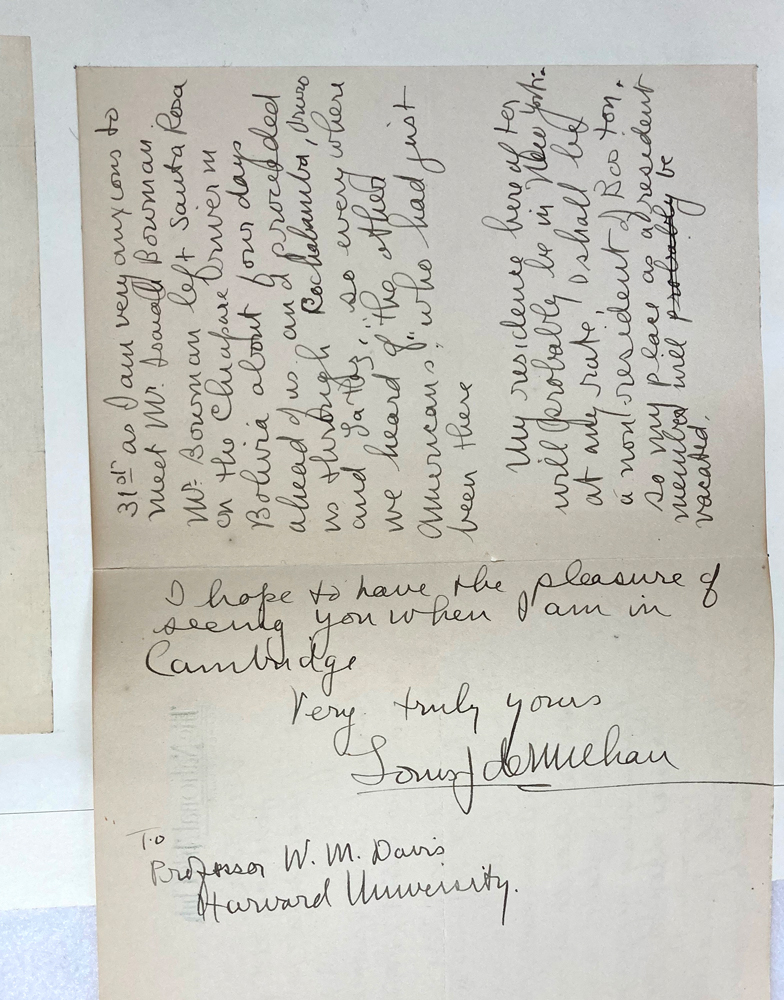 31st as I am very anxious to
meet Mr. Isaiah Bowman.
Mr. Bowman left Santa Rosa
on the Chapare River in
Bolivia about four days
ahead of us and proceeded
us through Cochabamba, Oruro
and La Paz, so every where
we heard of "the other
Americans" who had just
been there
My residence here after
will probably be in New York.
at any rate, I shall be
a non resident of Boston,
so my place as a resident
member will probably be
vacated.
I hope to have the pleasure of
seeing you when I am in
Cambridge
Very truly yours
Louis J de Milhau
To
Professor W. M. Davis
Harvard University.